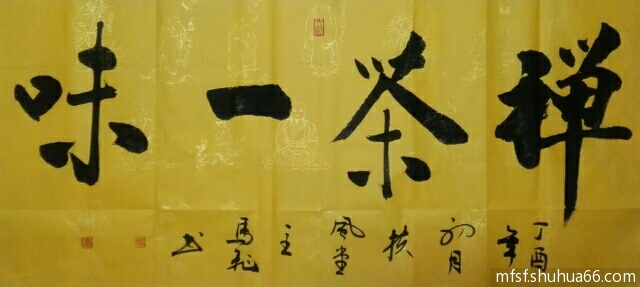 禅茶一味
丁酉年初月扶風堂主馬飛书
mfsf.shuhua66.com